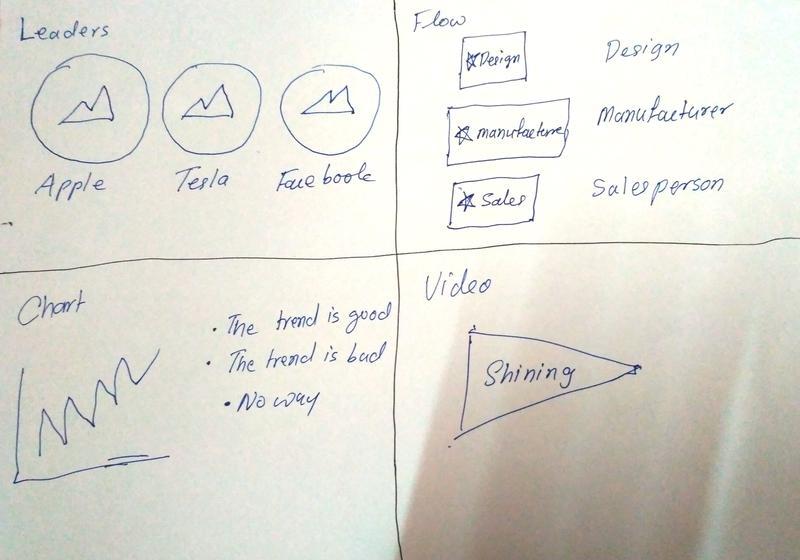 Leaders
Apple
Tesla
Facebook
Flow
Design
Design
manufacture
Manufacturer
Sales
Salesperson
Chart
• The trend is good
• The trend is bad
• No way
Video
Shining